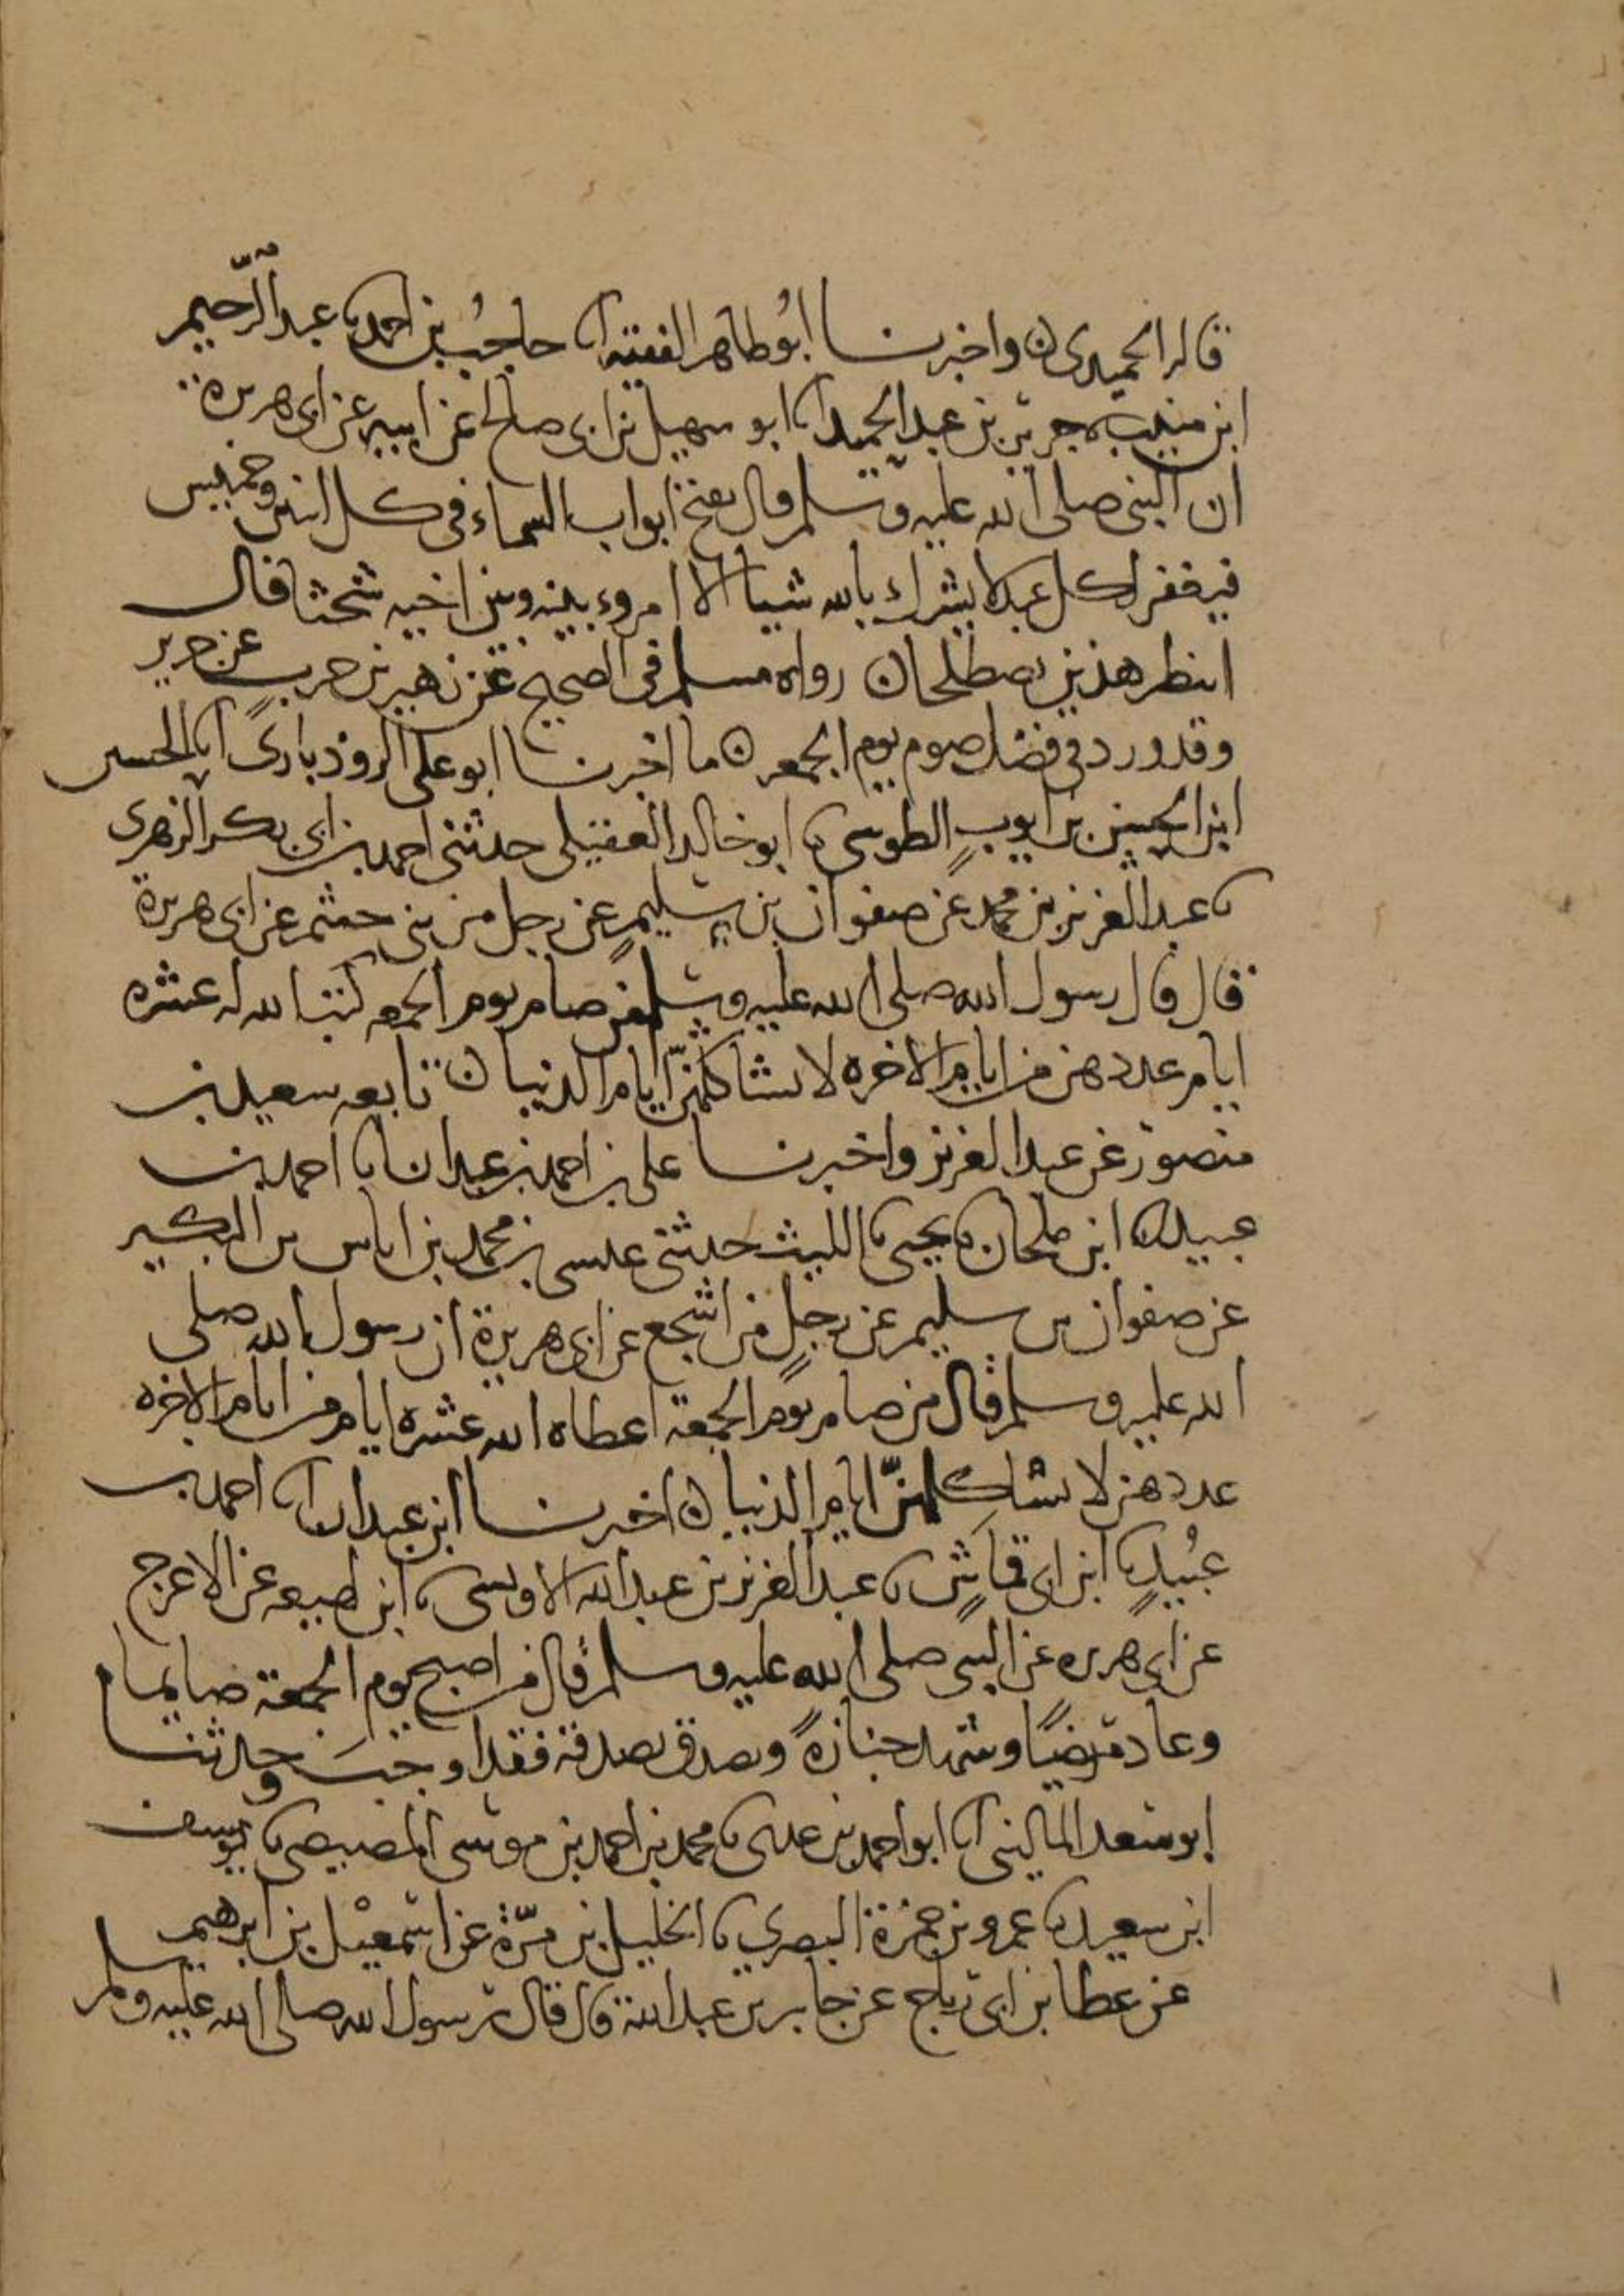 قاله الحميدي ن واخبرنا ابو طاهر الفقيه انا حاجب بن احمد نا عبد الرحيم
ابن منيب نا جرير بن عبد الحميد انا ابو سهيل بن ابي صالح عن ابيه عن ابي هريرة
ان النبي صلى الله عليه وسلم قال تفتح ابواب السماء في كل اثنين وخميس
فيغفر لكل عبد لا يشرك بالله شيا الا امروء بينه وبين اخيه شحنا فقال
انتظر هذين يصطلحان رواه مسلم في الصحيح عن زهير بن حرب عن جرير
وقد ورد في فضل صوم يوم الجمعه ن ما اخبرنا ابو علي الروذباري انا الحسين
ابن الحسن بن ايوب الطوسي نا ابو خالد العقيلي حدثني احمد بن ابي بكر الزهري
نا عبد العزيز بن محمد عن صفوان بن سليم عن رجل من بني جشم عن ابي هريرة
قال قال رسول الله صلى الله عليه وسلم من صام يوم الجمعه كتب الله له عشره
ايام عددهن من ايام الاخره لا تشاكلهن ايام الدنيا ن تابعه سعيد بن
منصور عن عبد العزيز واخبرنا علي بن احمد بن عبدان انا احمد بن
عبيد نا ابن ملحان نا يحيى نا الليث حدثني عيسى بن محمد بن اياس بن البكير
عن صفوان بن سليم عن رجل من اشجع عن ابي هريرة ان رسول الله صلى
الله عليه وسلم قال من صام يوم الجمعة اعطاه الله عشره ايام من ايام الاخره
عددهن لا تشاكلهن ايام الدنيا ن اخبرنا ابن عبدان انا احمد بن
عبيد نا ابن ابي قماش نا عبد العزيز بن عبد الله الاويسي نا ابن لهيعه عن الاعرج
عن ابي هريره عن النبي صلى الله عليه وسلم قال من اصبح يوم الجمعة صايما
وعاد مريضا وشهد جنازة وتصدق بصدقة فقد اوجب وحدثنا
ابو سعد الماليني انا ابو احمد بن عدي نا محمد بن احمد بن موسى المصيصي نا يوسف
ابن سعيد نا عمرو بن حمزة البصري نا الخليل بن مرة عن اسمعيل بن ابرهيم
عن عطا بن ابي رباح عن جابر بن عبد الله قال قال رسول الله صلى الله عليه وسلم